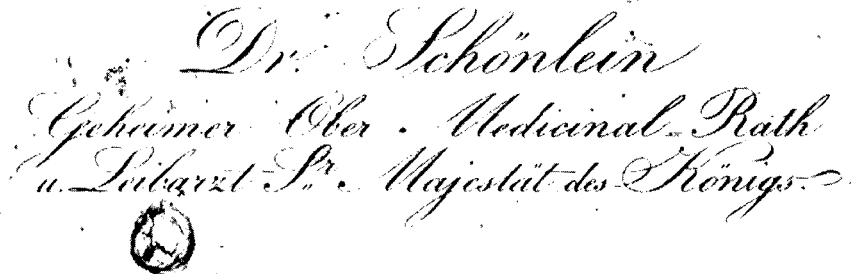 Dr. Schönlein
Geheimer Ober-Medicinal-Rath
u. Leibarzt Sr. Majestät des Königs.